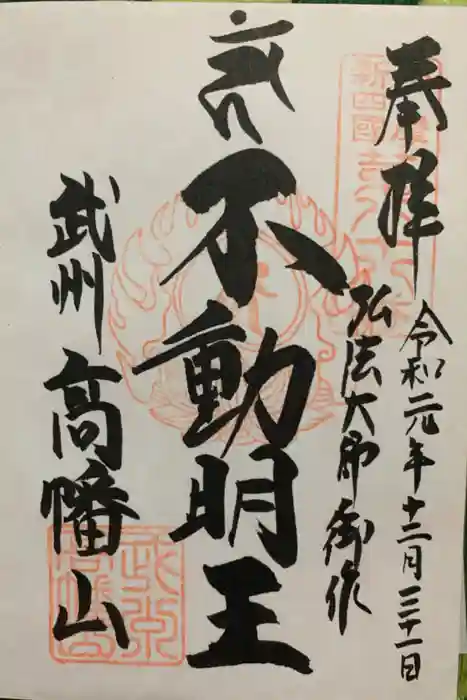 奉拝
令和元年十二月三十一日
新四國
弘法大師御作
不動明王
武州 高幡山